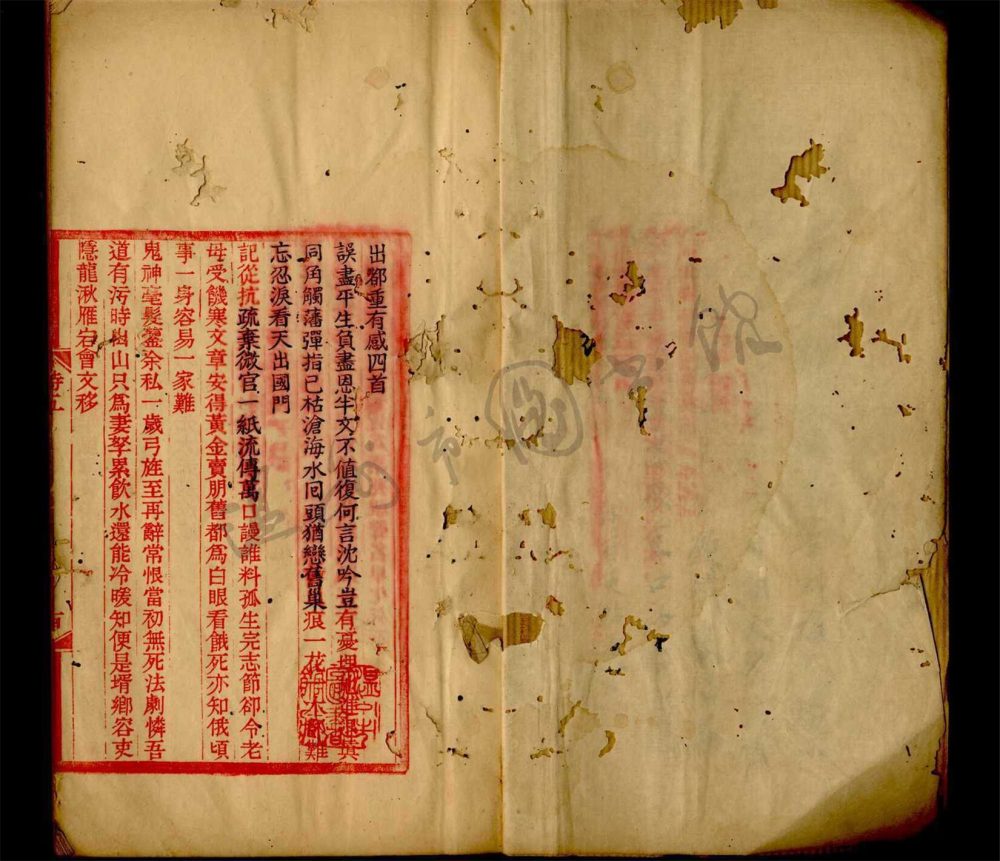 出都重有感四首
誤盡平生負盡恩半文不值復何言沈吟豈有憂
同角觸藩彈指已枯滄海水回頭猶戀舊巢痕一花
忘忍淚看天出國門
記從抗疏棄微官一紙流傳萬口謾誰料孤生完志節卻令老
母受饑寒文章安得黃金賣朋舊都為白眼看餓死亦知俄頃
事一身容易一家難
鬼神毫髮鑒余私一歲弓旌至再辭常恨當初無死法劇憐吾
道有污時幽山只為妻孥累飲水還能冷暖知便是壻鄉容吏
隱龍湫雁宕會文移
溫州市圖書館